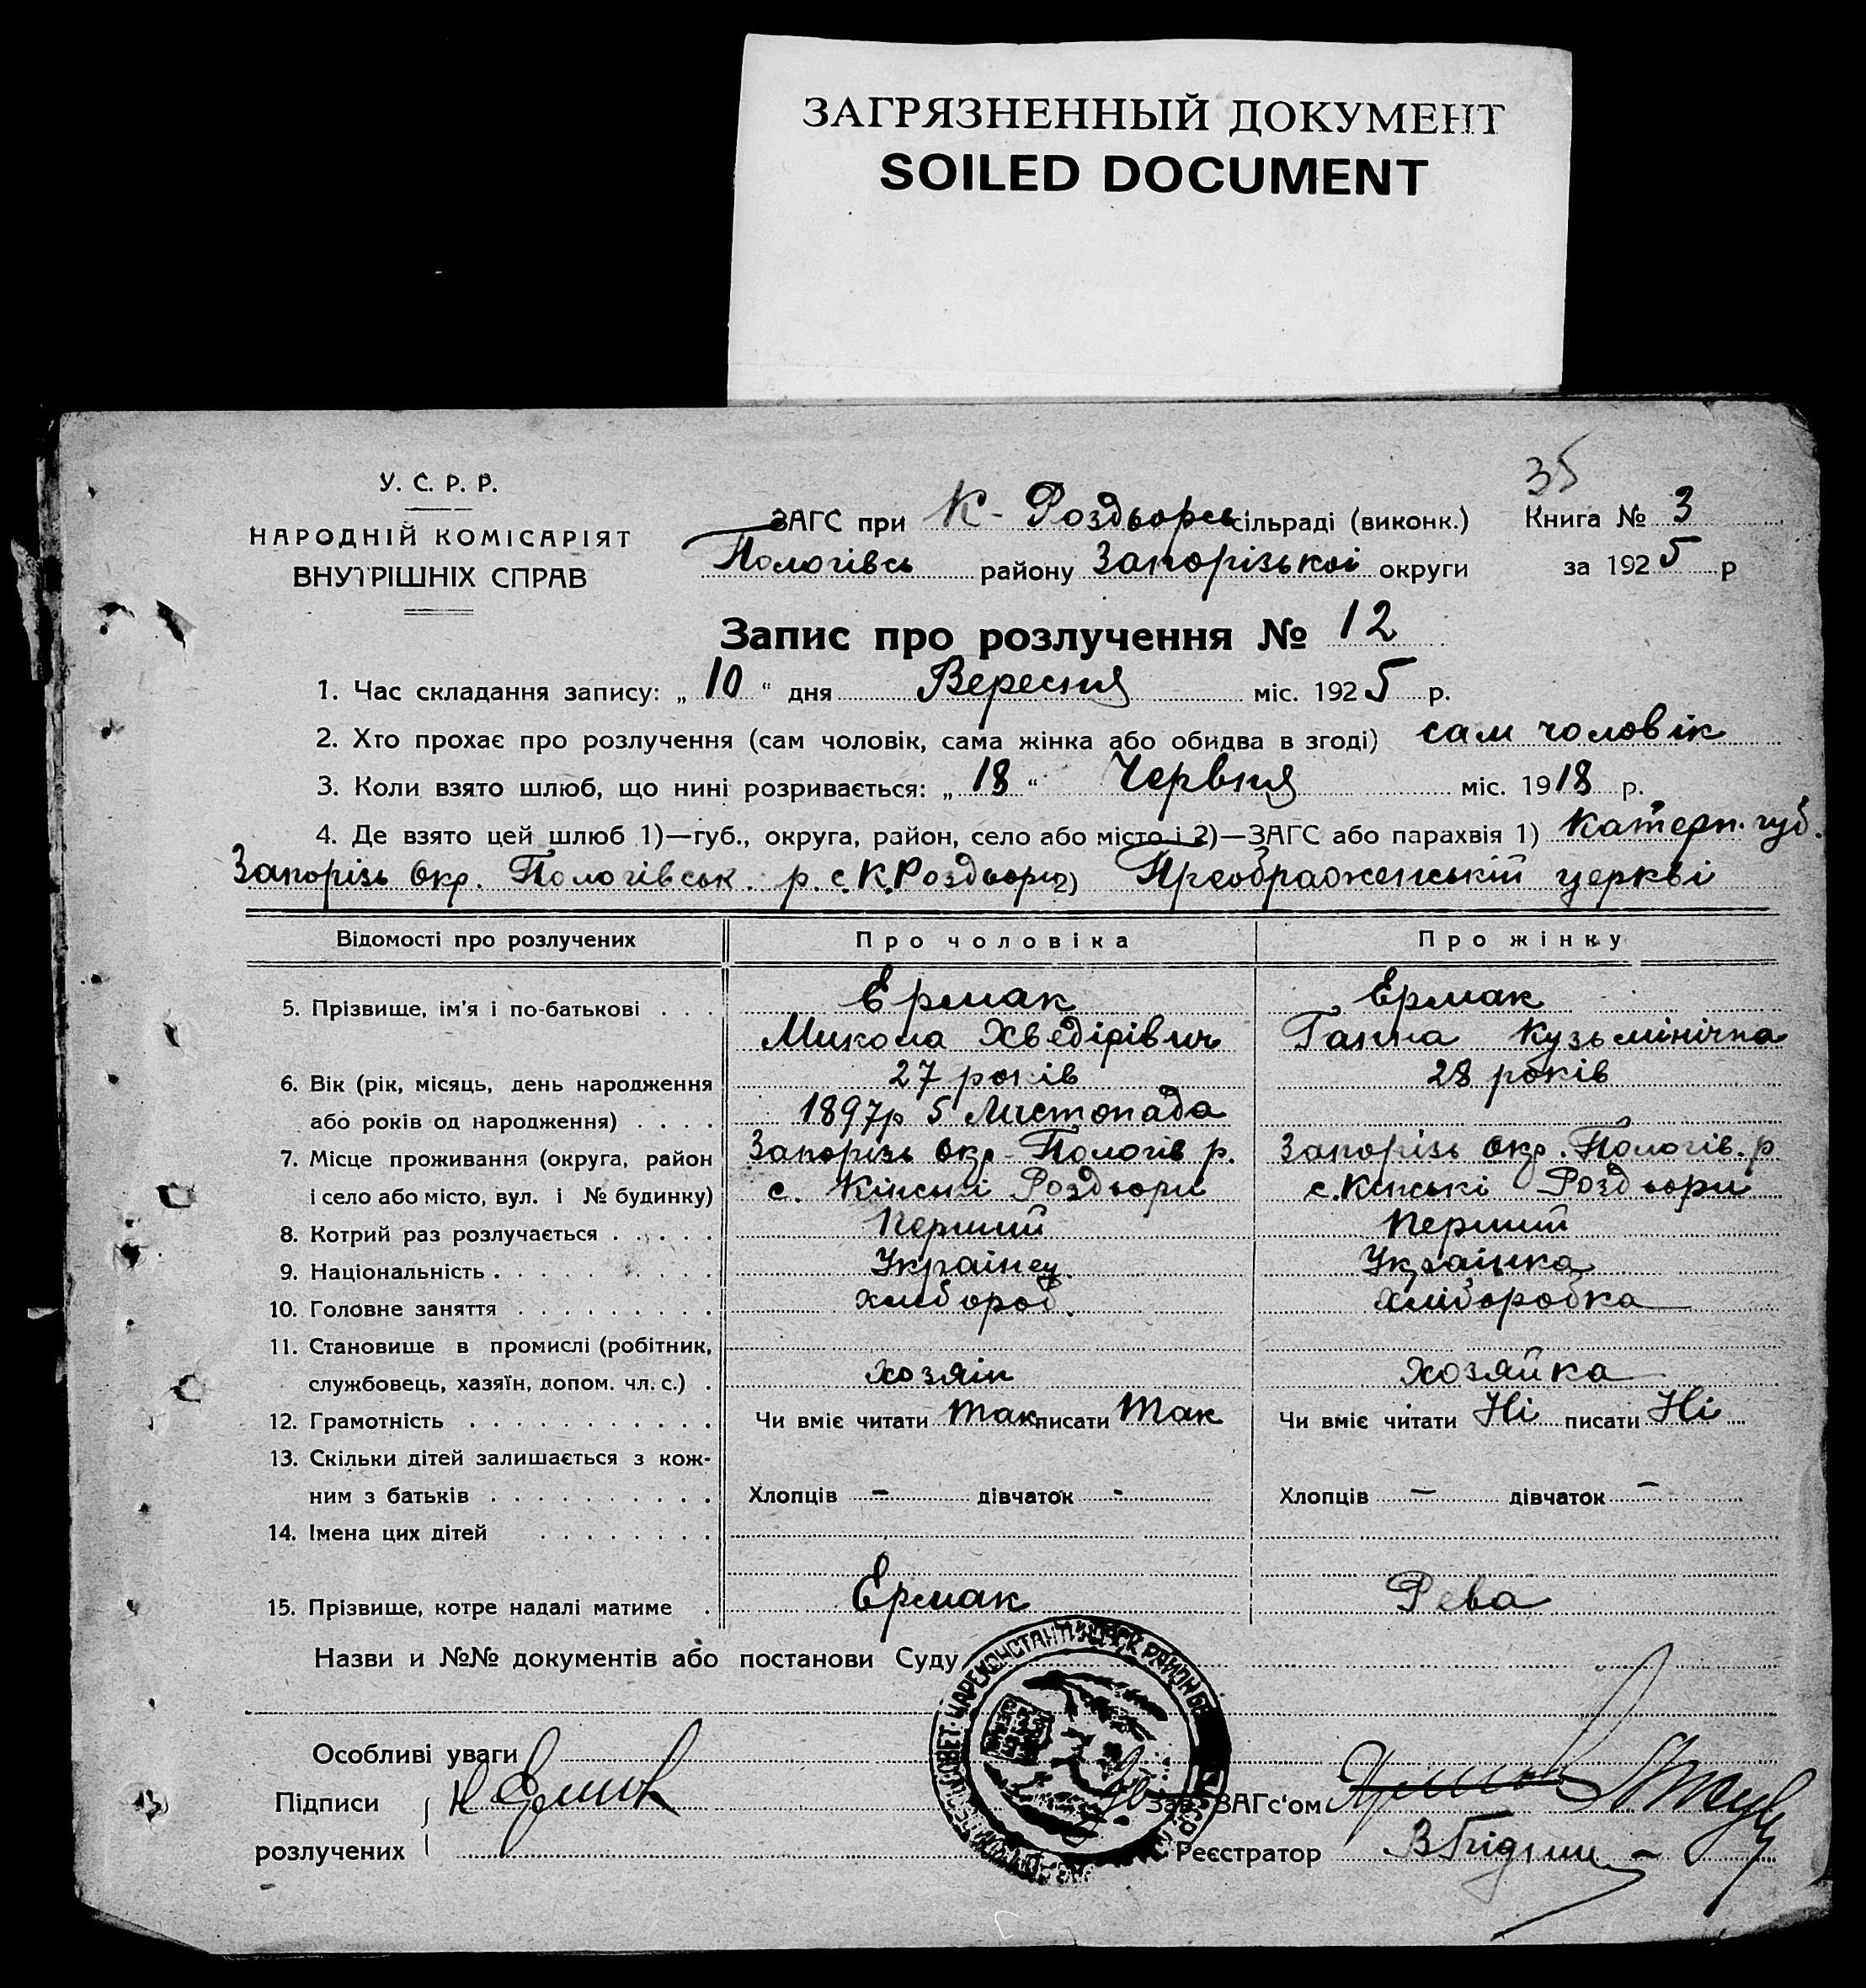 ЗАГРЯЗНЕННЫЙ ДОКУМЕНТ
SOILED DOCUMENT
35
У. С. Р. Р.
НАРОДНІЙ КОМІСАРІЯТ
ВНУТРІШНІХ СПРАВ
ЗАГС при К-Роздьорсь сільраді (виконк.) Книга № 3
Пологівсь району Запорізькоі округи за 1925 р
Запис про розлучення № 12
1. Час складання запису: „ 10 “ дня Вересня міс. 1925 р.
2. Хто прохає про розлучення (сам чоловік, сама жінка або обидва в згоді) сам чоловік
3. Коли взято шлюб, що нині розривається: „ 18 “ Червня міс. 1918 р.
4. Де взято цей шлюб 1)—губ., округа, район, село або місто і 2)—ЗАГС або парахвія 1) Катерн. губ.
Запорізь Окр. Пологівськ. р. с. К. Роздьори 2) Преображенській церкві
Відомості про розлучених Про чоловіка Про жінку
5. Прізвище, ім'я і по-батькові . . . Ермак Ермак
Микола Хведірівич Ганна Кузьмінічна
6. Вік (рік, місяць, день народження 27 років 28 років
або років од народження) . . . . 1897р 5 Листопада
7. Місце проживання (округа, район Запорізь Окр. Пологів р. Запорізь Окр. Пологів. р
і село або місто, вул. і № будинку) с. Кінські Роздьори с. Кінські Роздьори
8. Котрий раз розлучається . . . . . Перший Перший
9. Національність . . . . . . . . . Українец Українка
10. Головне заняття . . . . . . . . . хлібороб. хліборобка
11. Становище в промислі (робітник,
службовець, хазяїн, допом. чл. с.) . хозяін хозяйка
12. Грамотність . . . . . . . . . . . Чи вміє читати Так писати Так Чи вміє читати Ні писати Ні
13. Скільки дітей залишається з кож-
ним з батьків . . . . . . . . . . Хлопців — дівчаток - Хлопців — дівчаток —
14. Імена цих дітей . . . . . . . .
15. Прізвище, котре надалі матиме . Ермак Рева
Назви и №№ документів або постанови Суду
ЦАРЕКОНСТАНТИНОВСК РАЙОН
Особливі уваги
Підписи Н Ермак Зав. ЗАГс'ом
розлучених Реєстратор